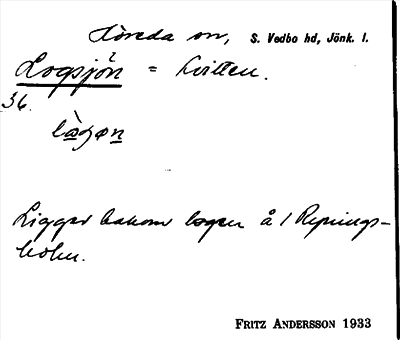 Höreda sn, S. Vedbo hd, Jönk. l.
Logsjön = Lvitten.
36.
làgøn
Ligger bakom logen å / Repnings-
holm.
FRITZ ANDERSSON 1933